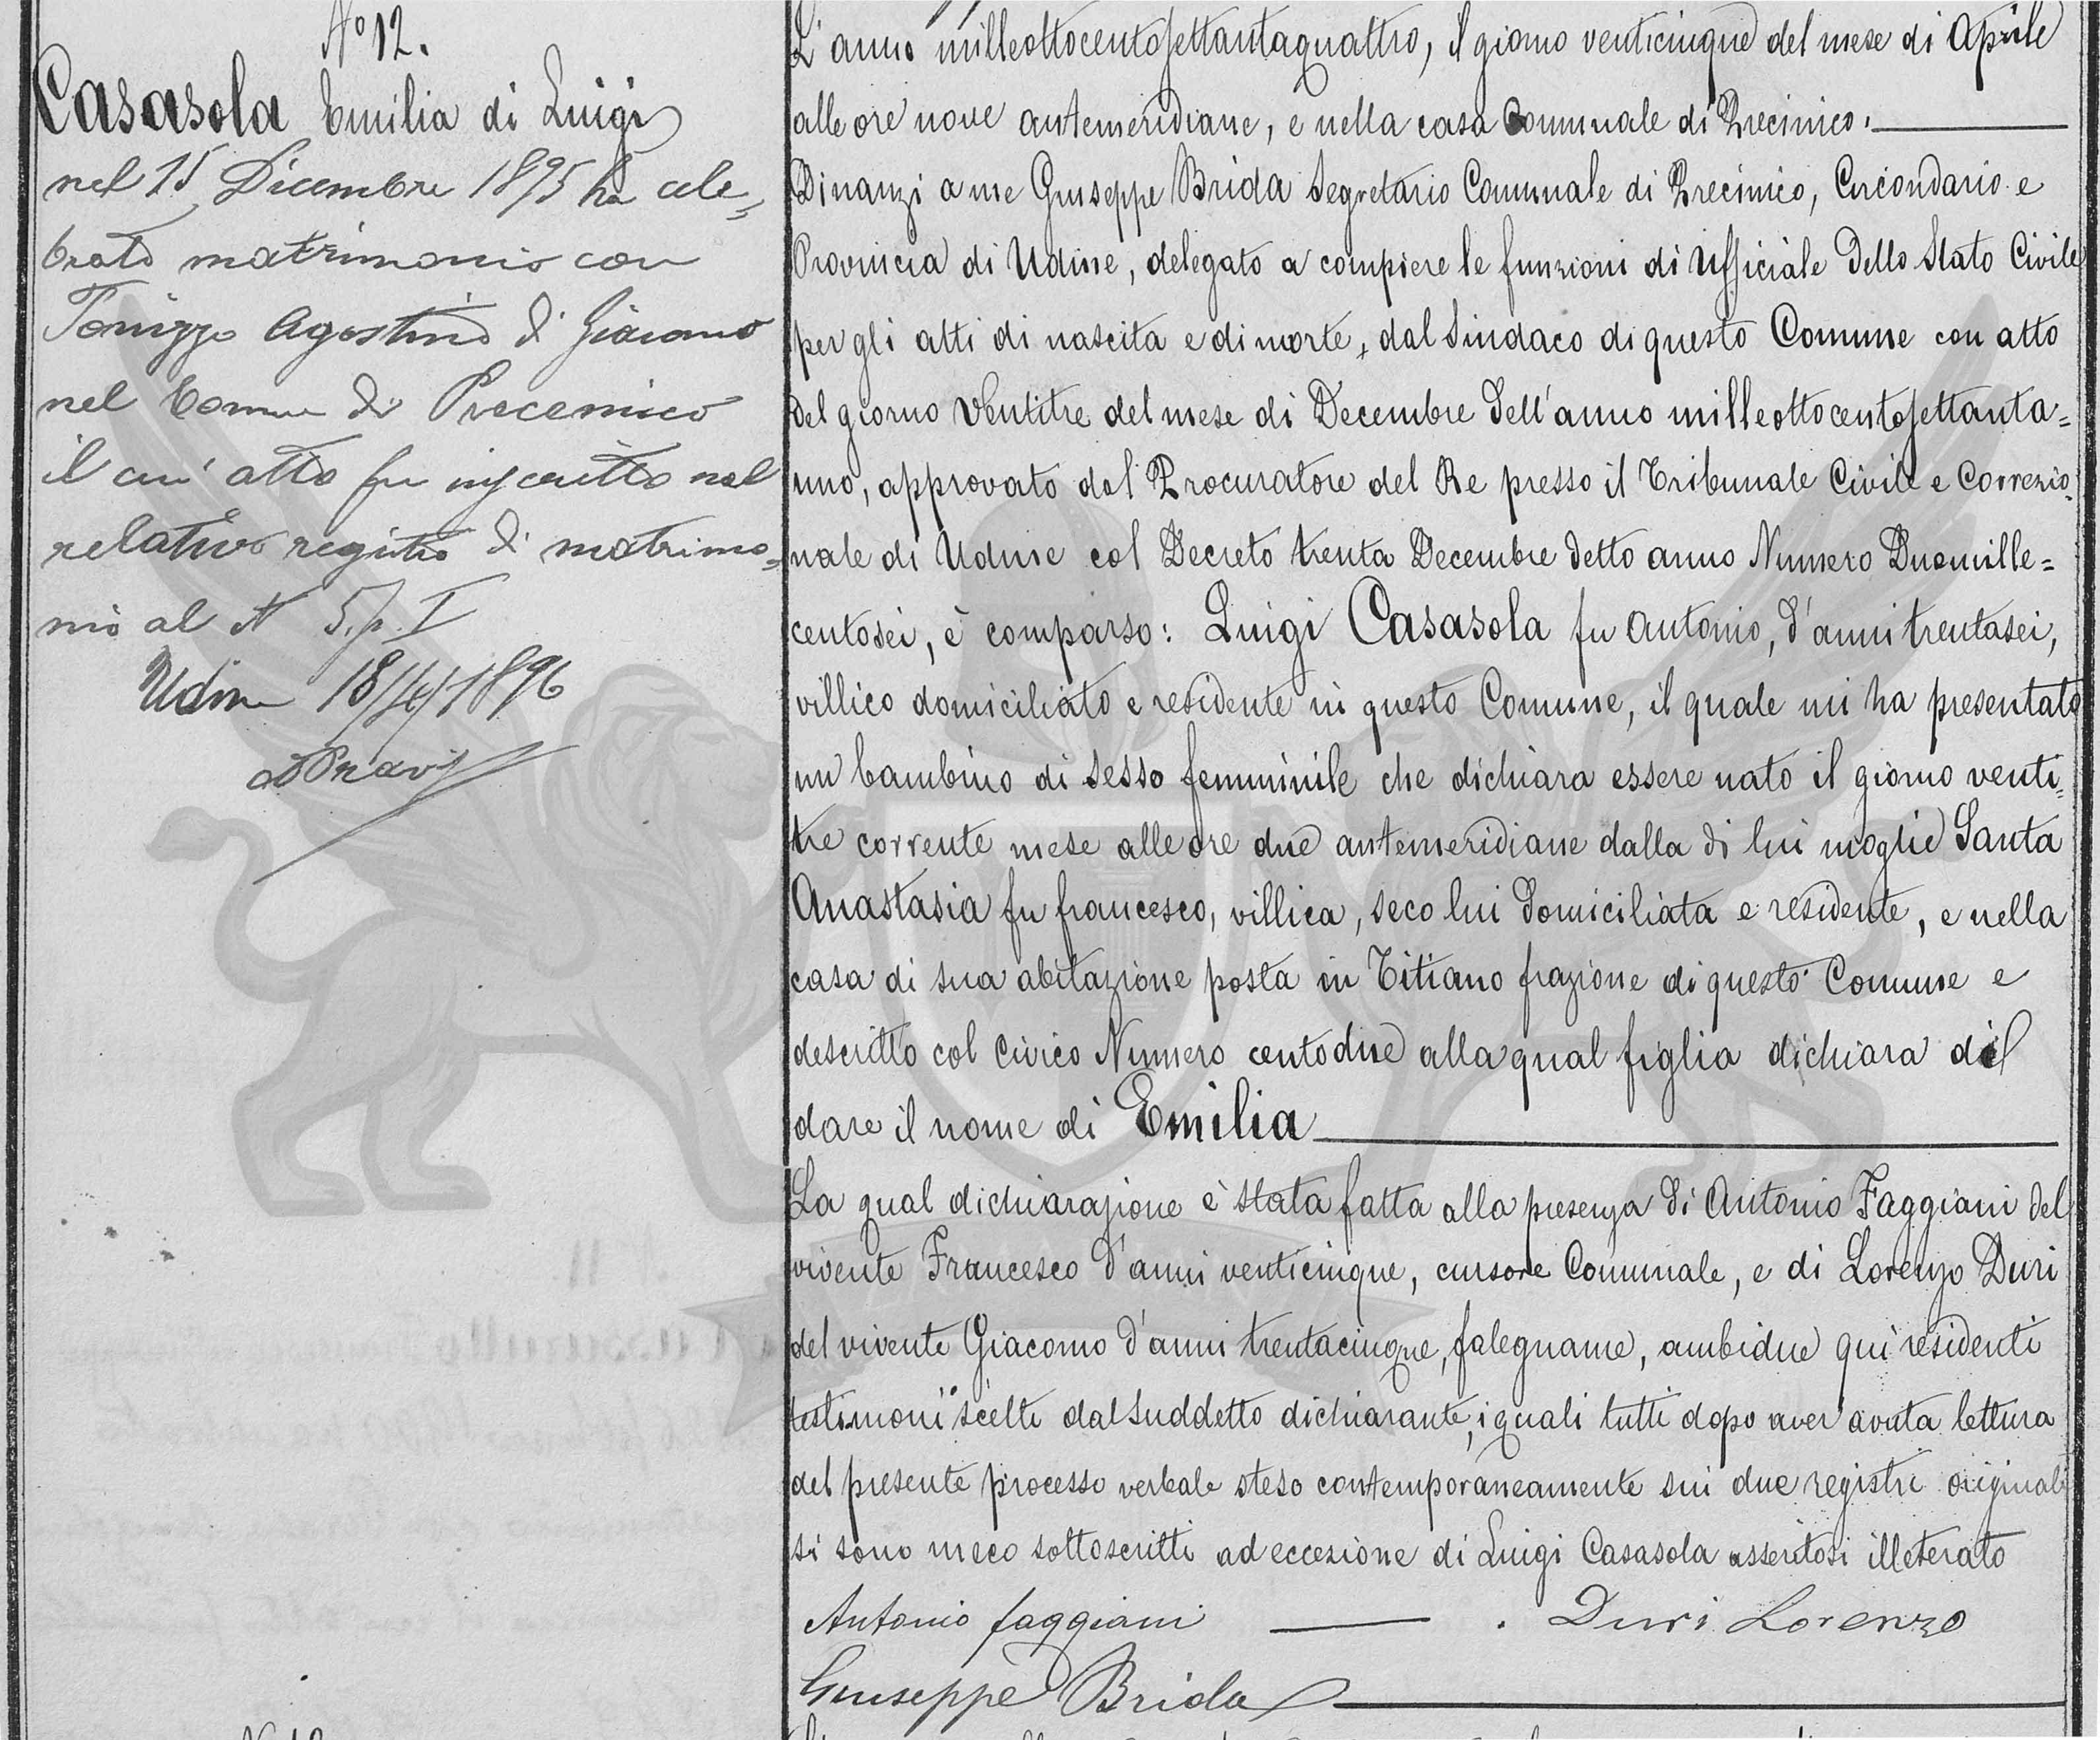 Nº 12.
Casasola Emilia di Luigi
nel 15 Dicembre 1895 ha cele=
brato matrimonio con
Tonizzo Agostino di Giacomo
nel Comune di Precenico
il cui atto fu inscritto nel
relativo registro di matrimo=
nio al N 5. p. I
Udine 18/4/1896
L'anno milleottocentosettantaquattro, il giorno venticinque del mese di Aprile
alle ore nove antemeridiane, e nella casa Comunale di Precinico.
Dinanzi a me Giuseppe Brida Segretario Comunale di Precinico, Circondario e
Provincia di Udine, delegato a compiere le funzioni di Ufficiale dello Stato Civile
per gli atti di nascita e di morte, dal Sindaco di questo Comune con atto
del giorno Ventitre del mese di Decembre dell'anno milleottocentosettanta=
uno, approvato dal Procuratore del Re presso il Tribunale Civile e Correzio=
nale di Udine col Decreto trenta Decembre detto anno Numero Duemille=
centosei, è comparso: Luigi Casasola fu Antonio, d'anni trentasei,
villico domiciliato e residente in questo Comune, il quale mi ha presentato
un bambino di sesso femminile che dichiara essere nato il giorno venti=
tre corrente mese alle ore due antemeridiane dalla di lui moglie Santa
Anastasia fu Francesco, villica, seco lui domiciliata e residente, e nella
casa di sua abitazione posta in Titiano frazione di questo Comune e
descritto col civico Numero centodue alla qual figlia dichiara di
dare il nome di Emilia
La qual dichiarazione è stata fatta alla presenza di Antonio Faggiani del
vivente Francesco d'anni venticinque, cursore Comunale, e di Lorenzo Duri
del vivente Giacomo d'anni trentacinque, falegname, ambidue qui residenti
testimoni scelti dal suddetto dichiarante, i quali tutti dopo aver avuta lettura
del presente processo verbale steso contemporaneamente sui due registri originali
si sono meco sottoscritti ad eccezione di Luigi Casasola asseritosi illeterato
Antonio Faggiani . Duri Lorenzo
Giuseppe Brida